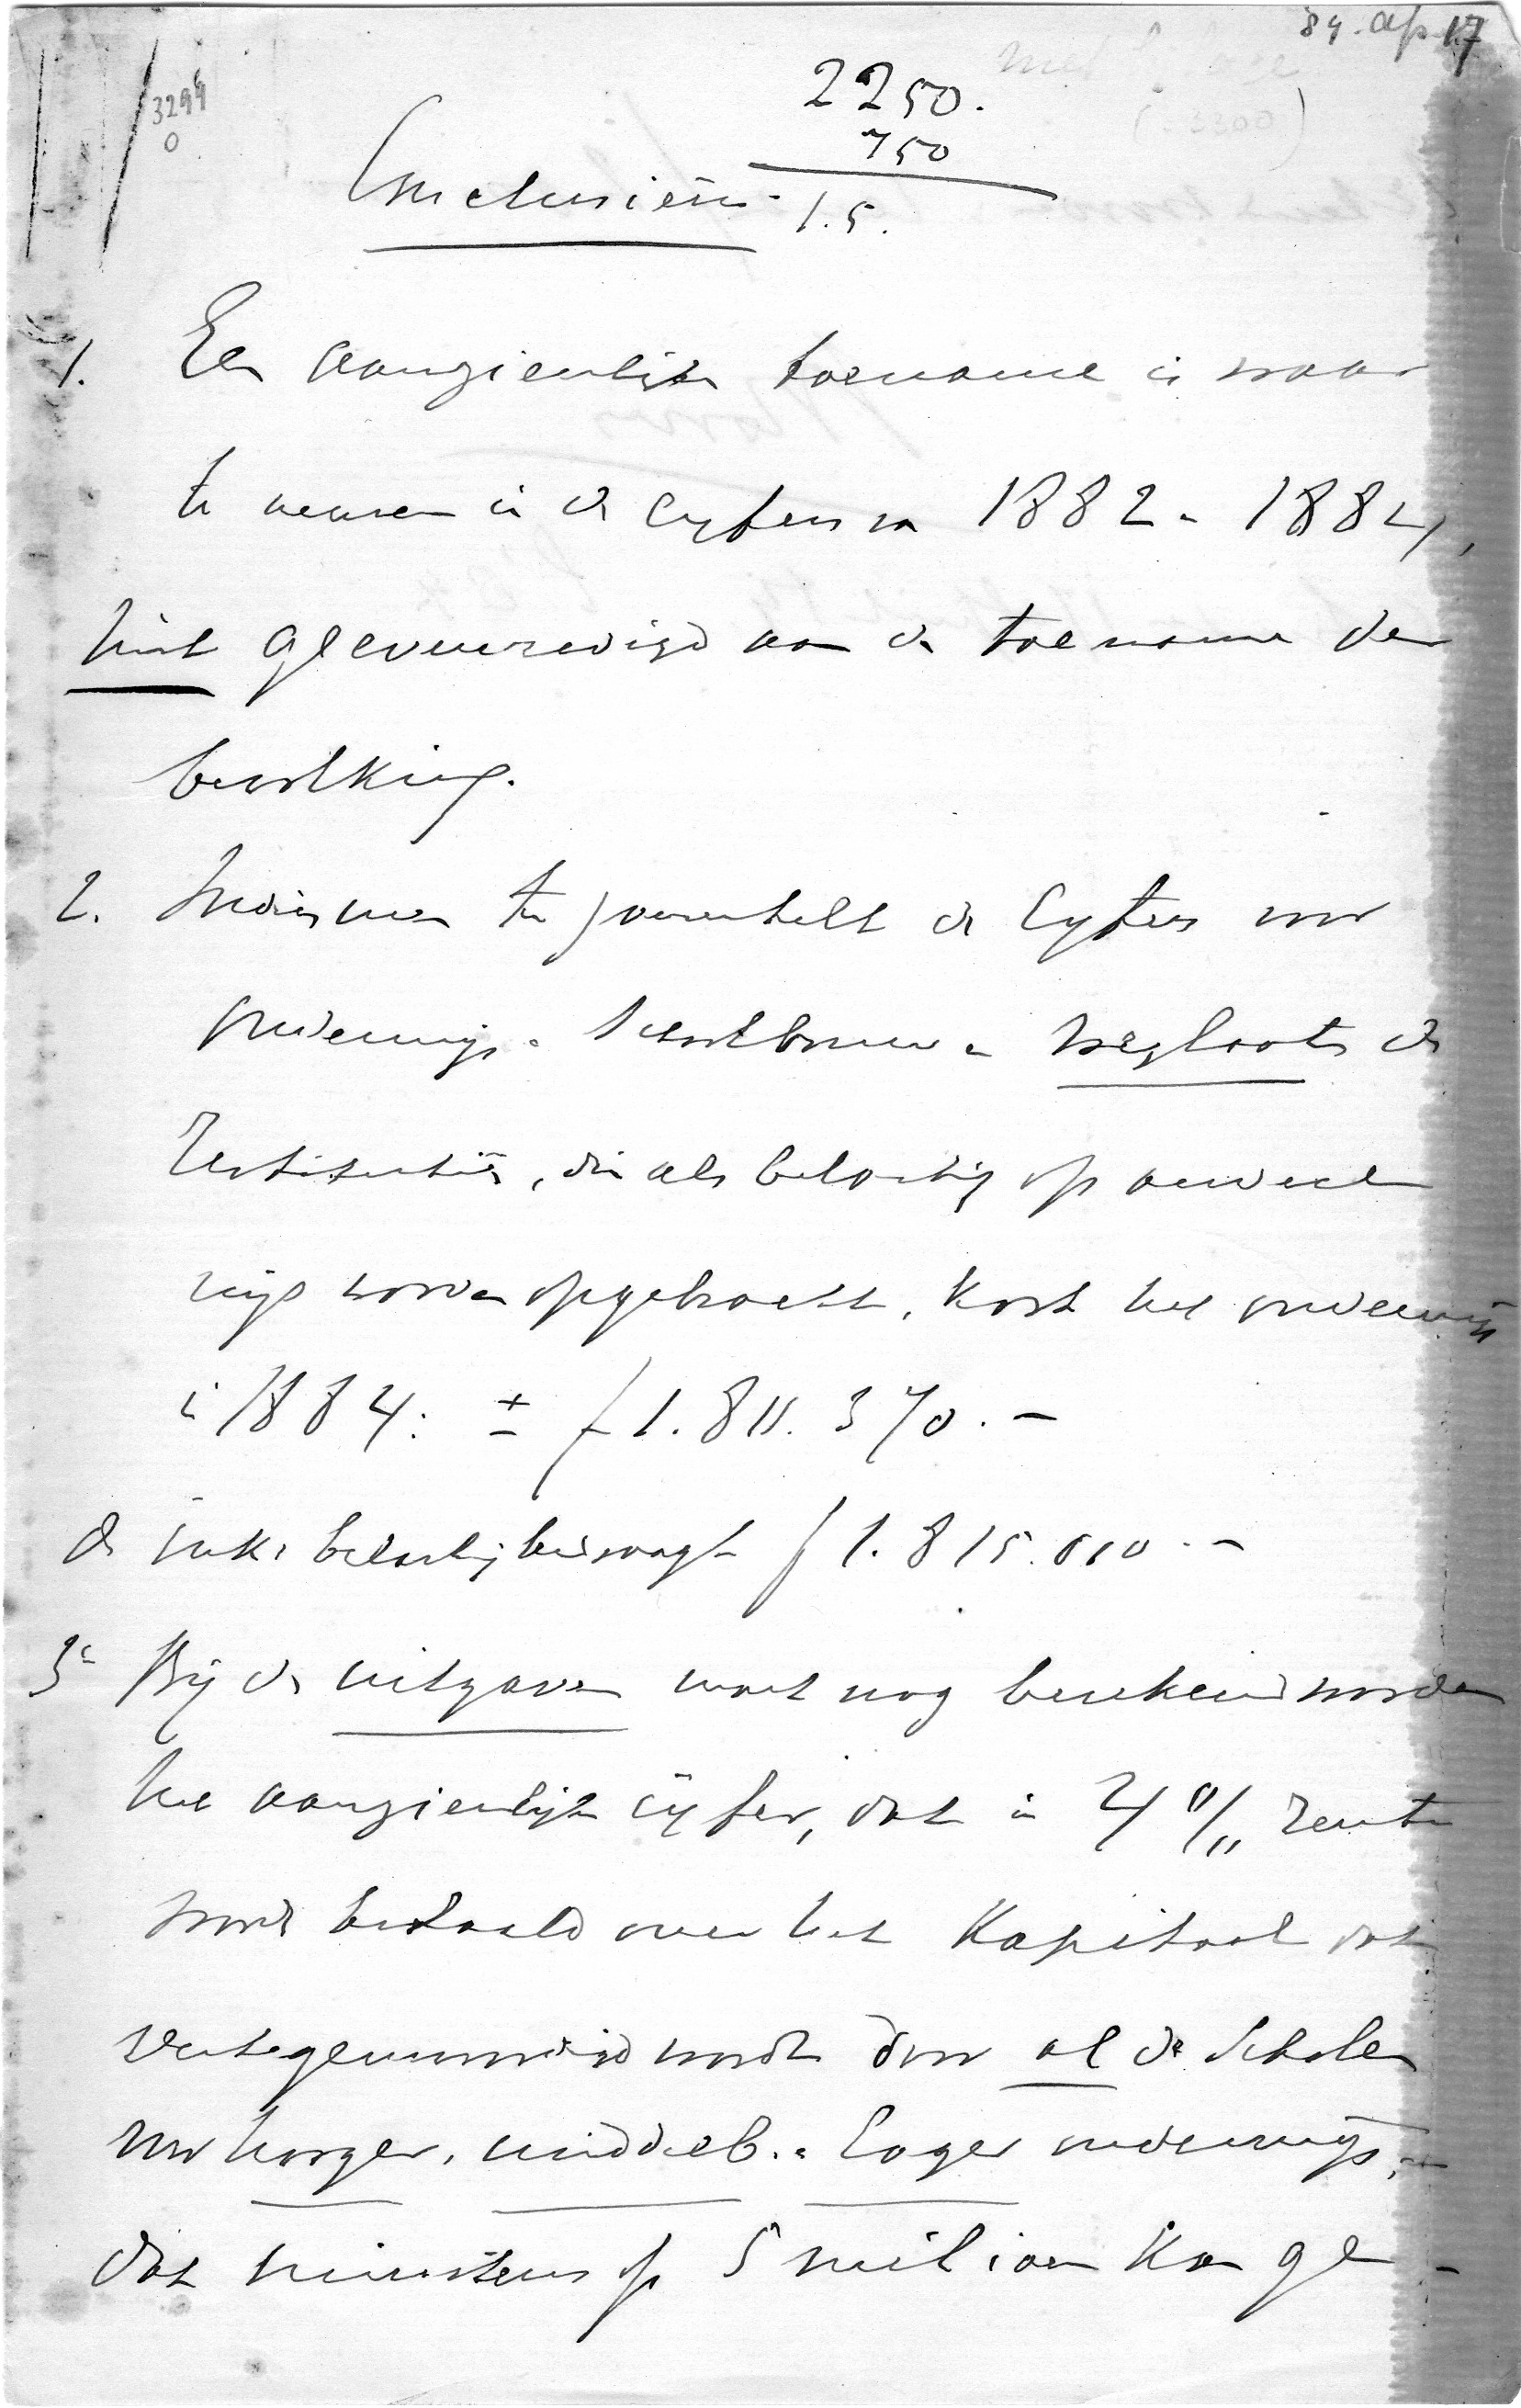 84. 17
3299
0
2250.
750
Conclusiën. 1.5.
1. Een aanzienlijke toename is waar
te nemen in de cyfers van 1882 - 1884,
niet geëvenredigd aan de toename der
bevolking.
2. Indien men te zamen telt de cyfers voor
onderwijs & schoolbouw & weglaat de
Restitutiën, die als belasting op onder
wijs worden opgebracht, kost het onderwijs
in 1884: ± f 1.811.370.-
de ink. belasting bedraagt f 1.815.000.-
3e Bij de uitgaven moet nog berekend worden
het aanzienlijk cyfer, dat in 4% rente
wordt betaald over het Kapitaal dat
vertegenwoordigd wordt door al de Scholen
voor hooger, middelb. & Lager onderwijs,
dat minstens op 5 milioen kan ge-